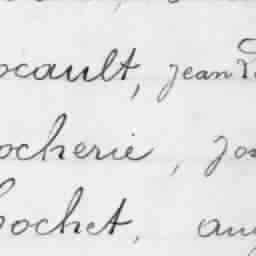 ocault, jean
ocherie, jos
ochet, aug